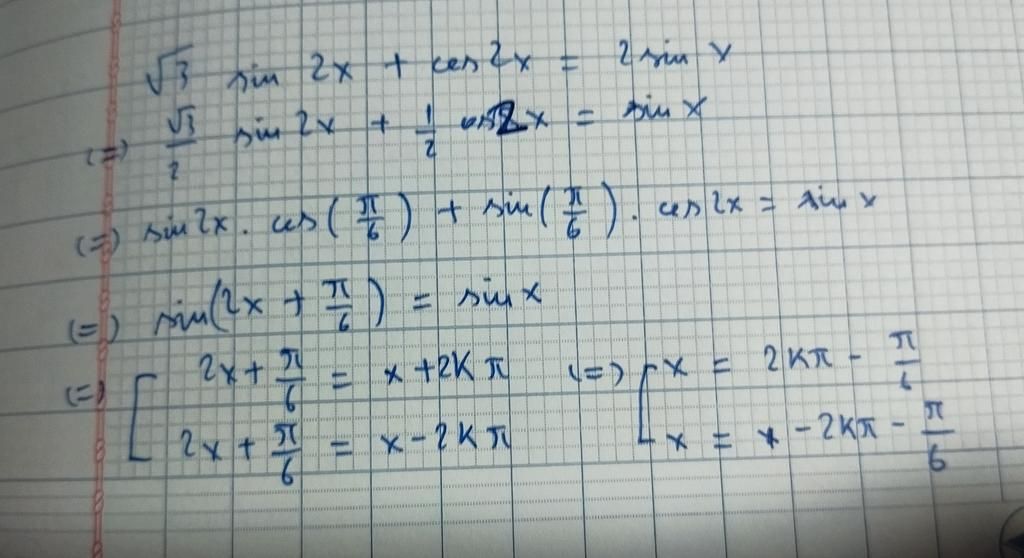 √3 sin 2x + cos 2x = 2 sin x
(=) √3/2 sin 2x + 1/2 cos 2x = sin x
(=) sin 2x . cos(π/6) + sin(π/6) . cos 2x = sin x
(=) sin(2x + π/6) = sin x
(=) [ 2x + π/6 = x + 2Kπ (=) [ x = 2Kπ - π/6
2x + π/6 = x - 2Kπ x = x - 2Kπ - π/6